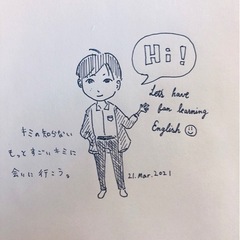 Hi!
Let's have
fun learning
English ☺
キミの知らない
もっとすごいキミに
会いに行こう。
21. Mar. 2021